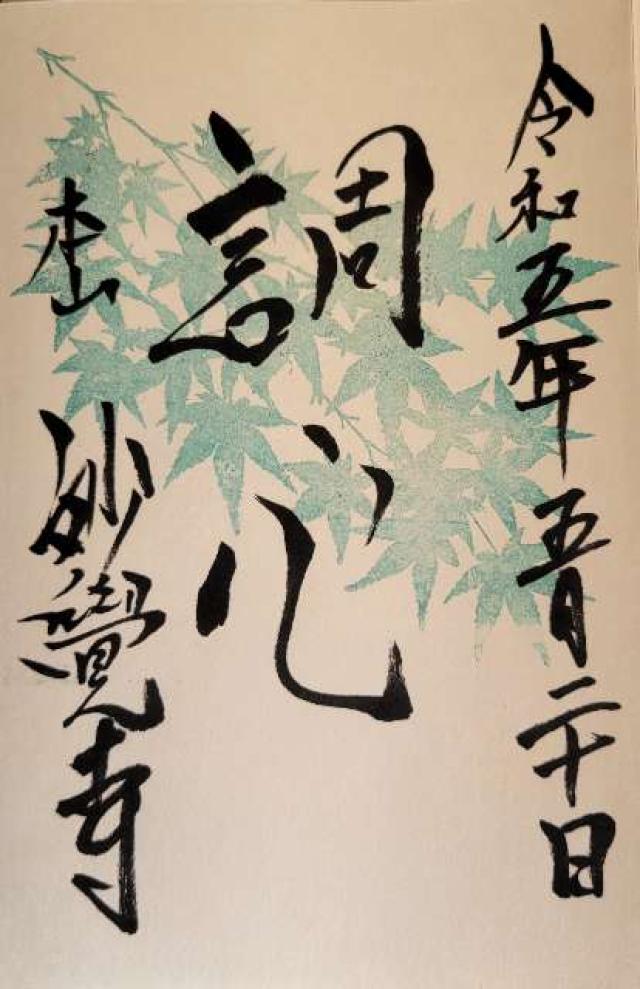 令和五年五月二十日
調心
本山
妙覺寺